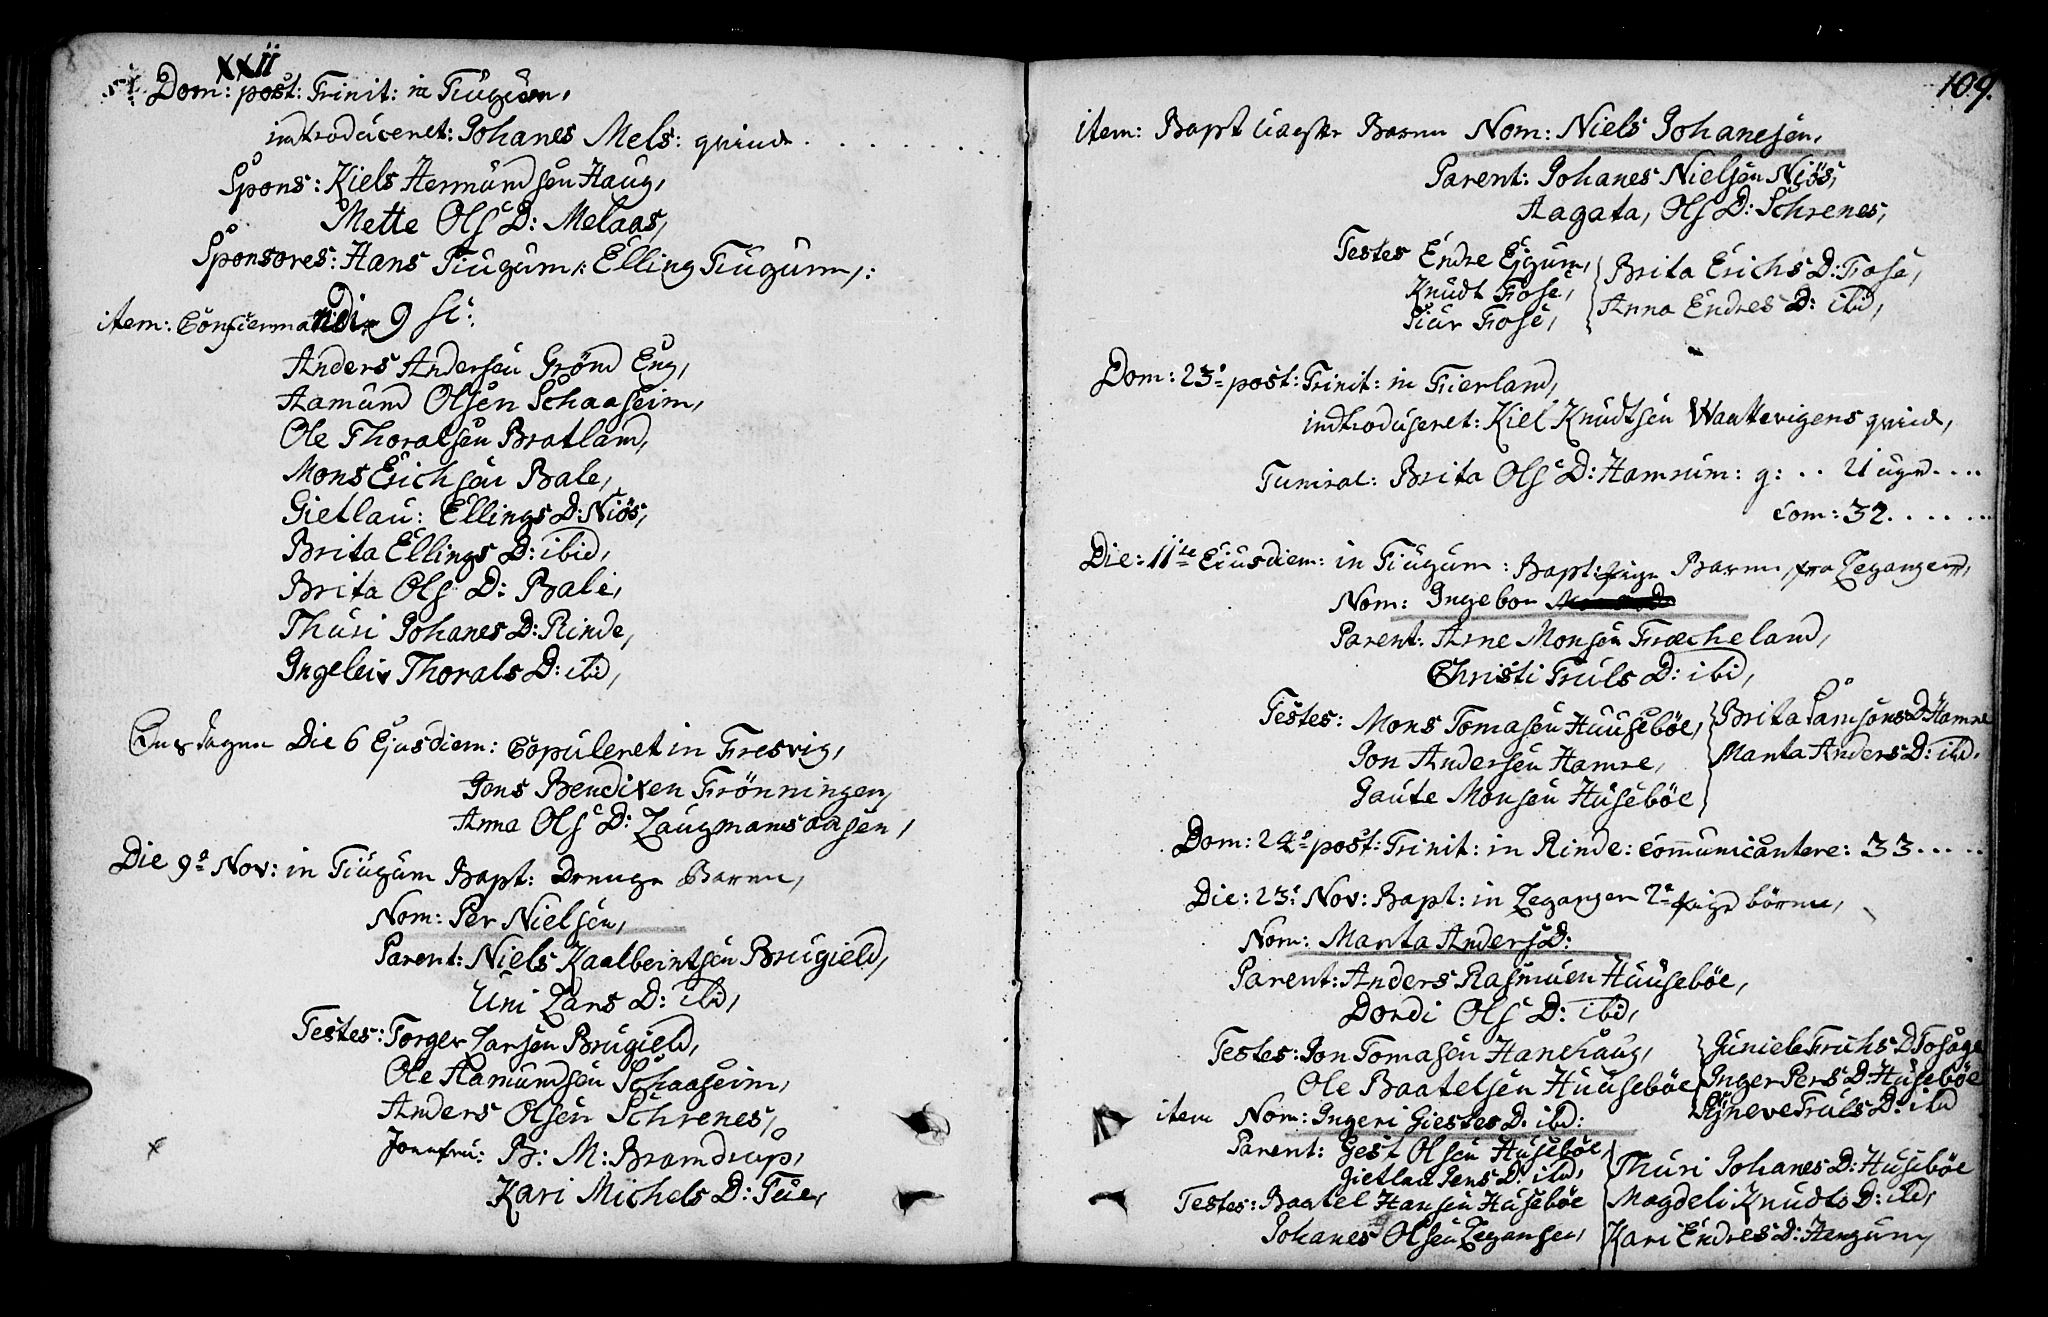 XXII
Dom: post: Trinit: in Tiugum,
introduceret: Johanes Mels: qvinde
Spons: Kiels Hermundsen Haug,
Mette Ols D: Melaas,
Sponsores: Hans Tiugum: Elling Tiugum,:
item: Confiermandi 9 St:
Anders Andersen Grönd Eng,
Aamund Olsen Schaaseim,
Ole Thoralsen Bratland,
Mons Erichsen Bale,
Gietlau: Ellings D: Niös,
Brita Ellings D: ibid,
Brita Ols D: Bale,
Thuri Johanes D: Rinde,
Ingeleiv Thorals D: ibid,
Onsdagen Die 6 Ejusdiem: Copuleret in Fresvig,
Jens Bendixen Frönningen,
Anna Ols D: Laugmansaasen,
Die 9de Nov: in Tiugum Bapt: Drenge Barn,
Nom: Per Nielsen,
Parent: Niels Kaalbeintsen Brugield,
Uni Lars D: ibid,
Testes: Torger Larsen Brugield,
Ole Aamundsen Schaaseim,
Anders Olsen Schrenes,
Jomfru: B: M: Bramdrup,
Kari Michels D: Tue,
109.
item: Bapt Uægte Barn Nom: Niels Johanesen,
Parent: Johanes Nielsen Niös,
Aagata, Ols D: Schrenes,
Testes Endre Ejgum, Brita Erichs D: Fose,
Knudt Fose, Anna Endres D: ibid,
Siur Fose,
Dom: 23de post: Trinit: in Fierland,
indtroduseret: Kiel Knudtsen Waattevigens qvinde,
Funiral: Brita Ols D: Hamrum: g: .. Uger....
Com: 32......
Die: 11te Ejusdiem: in Tiugum: Bapt: pige Barn, fra Leganger,
Nom: Ingebor
Parent: Arne Monsen Fræcheland,
Christi Truls D: ibid,
Testes: Mons Tomasen Huusebøe, Brita Samsons D Hamre
Jon Andersen Hamre, Marita Anders D: ibid,
Gaute Monsen Husebøe
Dom: 24de post: Trinit: in Rinde: Communicantere: 33.....
Die: 23de Nov: Bapt: in Leganger 2de pige börn,
Nom: Marita Anders D:
Parent: Anders Rasmuen Huusebøe,
Dordi Ols D: ibid,
Testes: Jon Tomasen Hanehaug, Guniele Truls D Tosage
Ole Baatelsen Huusebøe Inger Pers D: Husebøe
item Nom: Ingeri Giestes D: ibd: Synneve Truls D: ibid
Parent: Gest Olsen Husebøe, Thuri Johanes D: Husebøe
Gietlau Jens D: ibid,
Testes: Baatel Hansen Husebøe Magdeli Knudts D: ibid,
Johanes Olsen Legangen, Kari Endres D: Hengum,